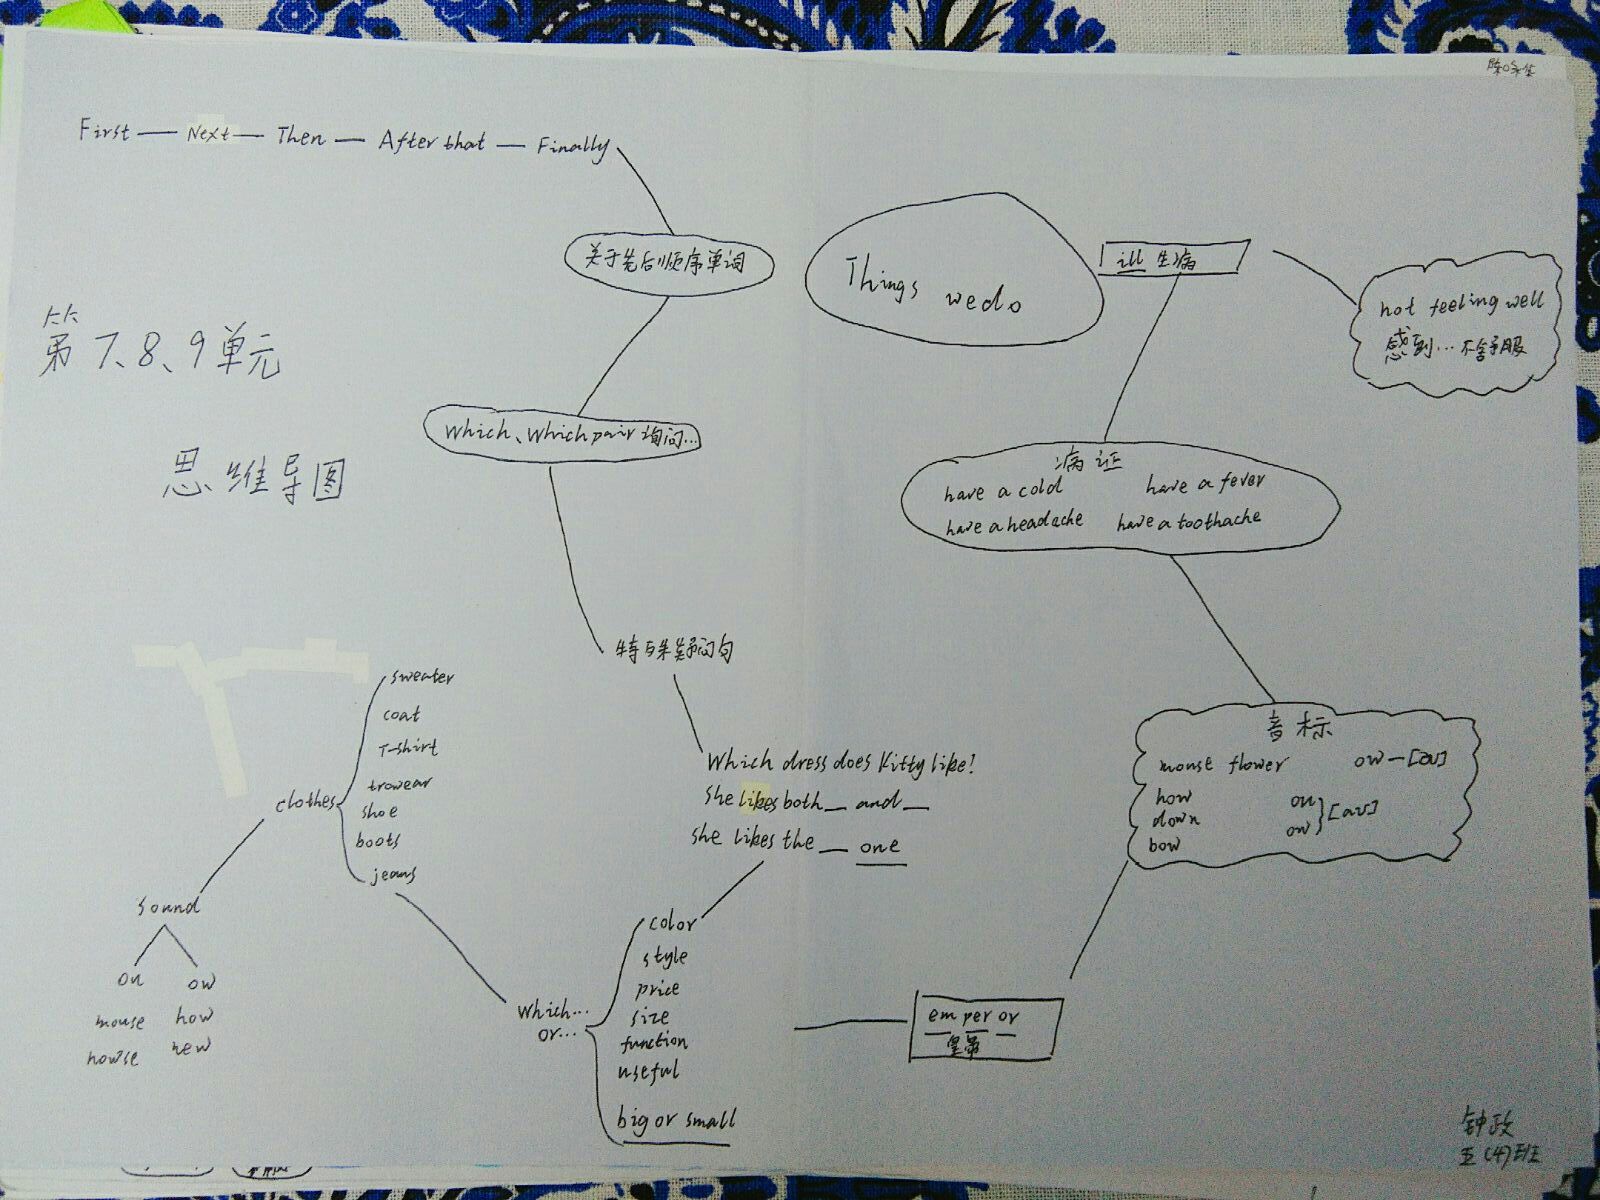 First — Next — Then — After that — Finally
关于先后顺序单词
Things we do
ill 生病
not feeling well
感到…不舒服
第7、8、9单元
思维导图
Which、Which pair 询问…
病证
have a cold have a fever
have a headache have a toothache
特殊疑问句
Which dress does Kitty like?
She likes both _ and _
she likes the _ one
音标
mouse flower ow—[au]
how ou
down ow } [au]
bow
clothes
sweater
coat
T-shirt
trowear
shoe
boots
jeans
sound
ou ow
mouse how
howse new
which...
or...
color
style
price
size
function
useful
big or small
em per or
皇帝
钟政
五(4)班